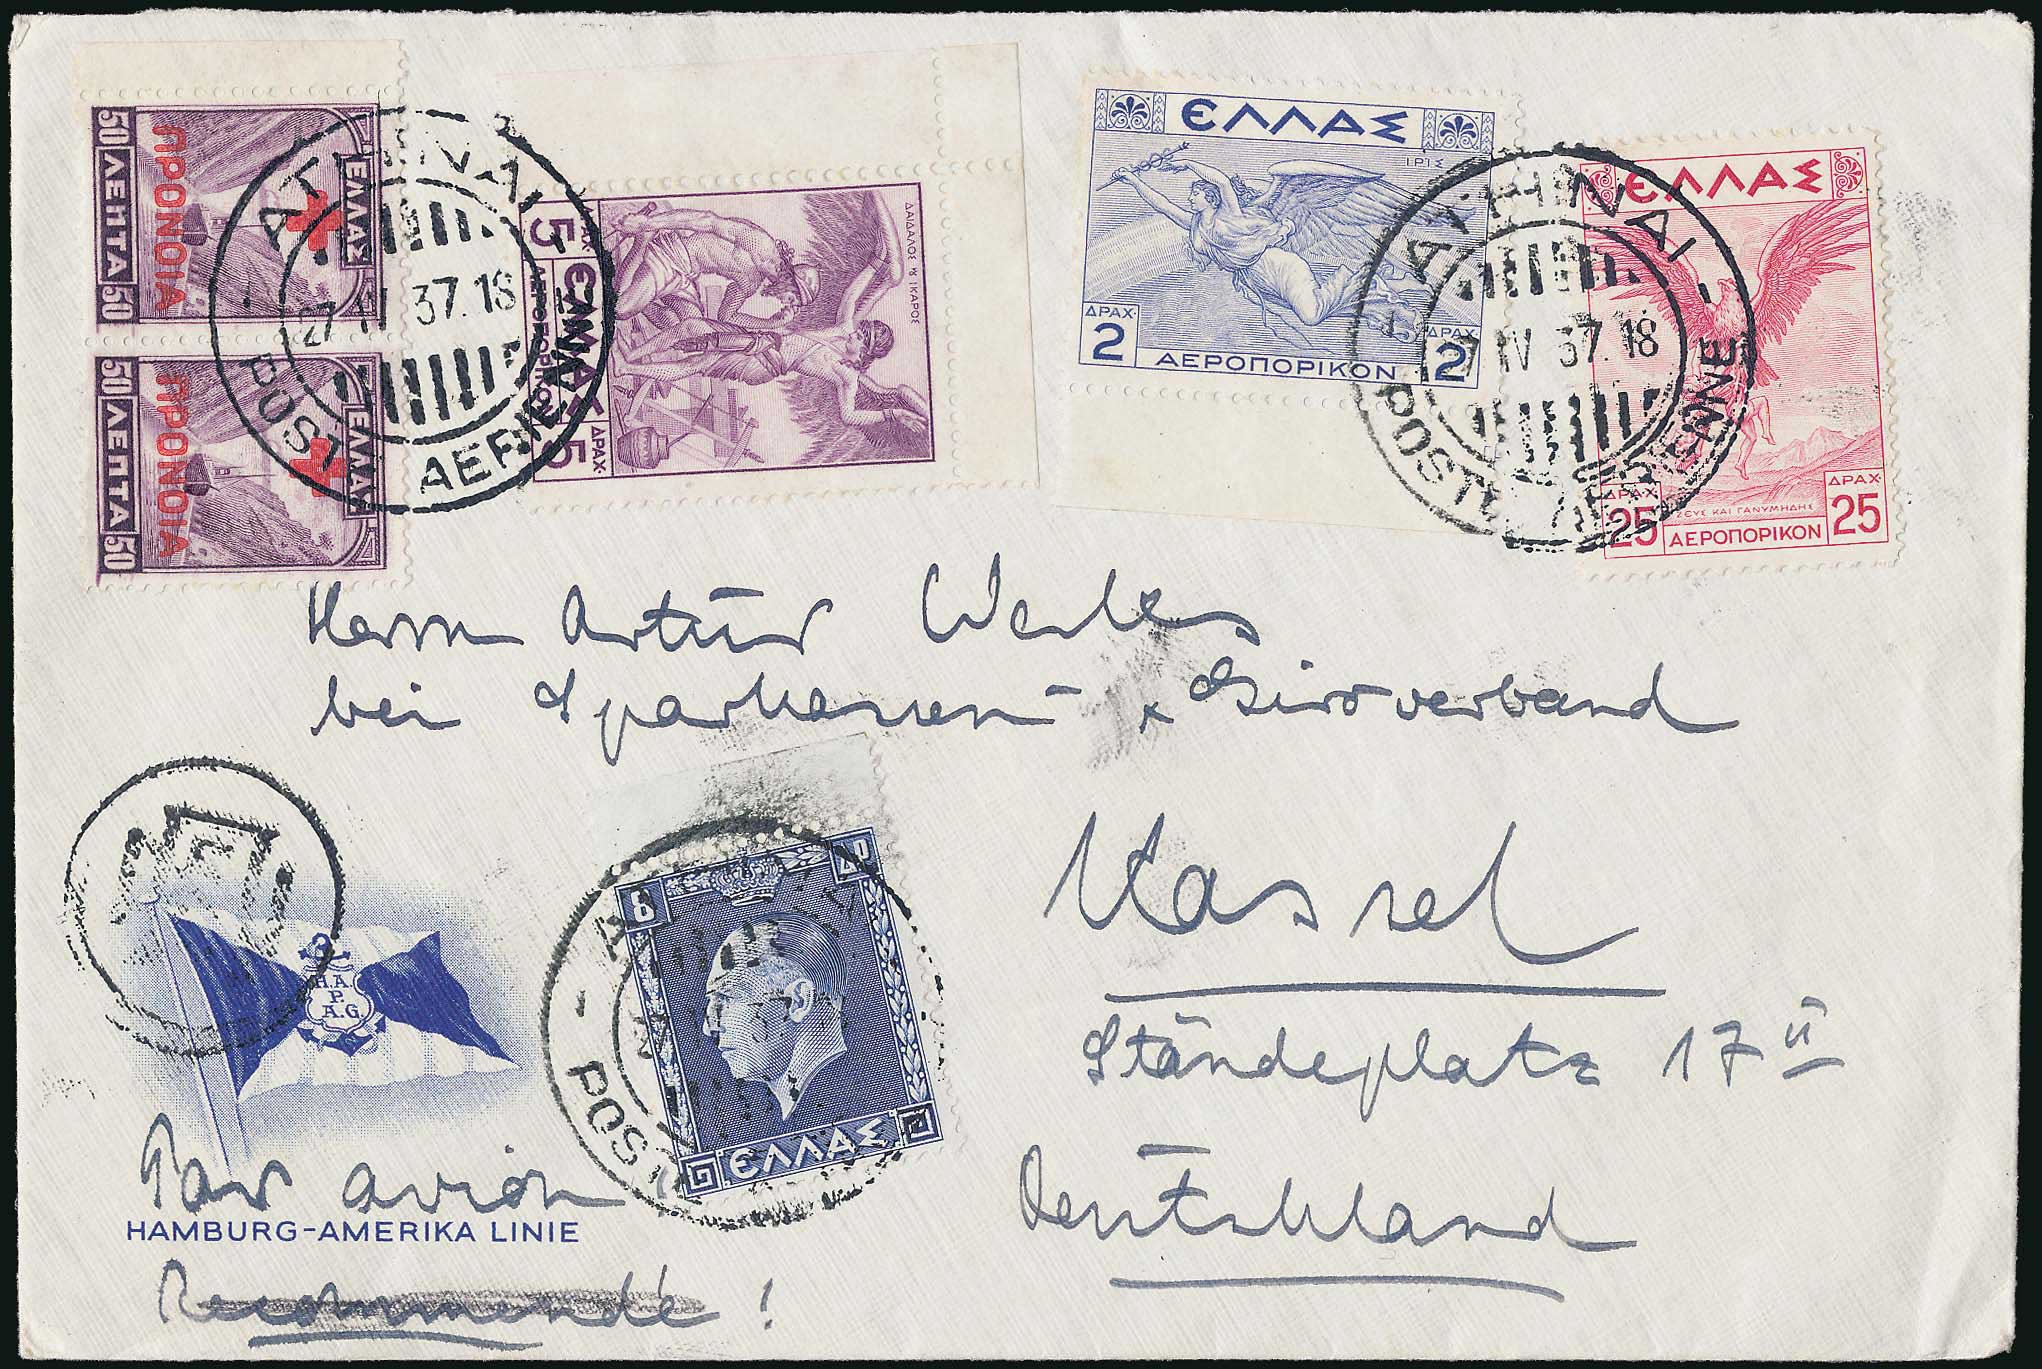 50 ΛΕΠΤΑ 50
ΠΡΟΝΟΙΑ
ΕΛΛΑΣ
50 ΛΕΠΤΑ 50
ΠΡΟΝΟΙΑ
ΕΛΛΑΣ
27 IV 37.18
POSTE AERIENNE
5 ΕΛΛΑΣ 5
ΔΡΑΧ.
ΑΕΡΟΠΟΡΙΚΟΝ
ΔΑΙΔΑΛΟΣ Κ ΙΚΑΡΟΣ
ΕΛΛΑΣ
ΙΡΙΣ
ΔΡΑΧ. ΔΡΑΧ.
2 ΑΕΡΟΠΟΡΙΚΟΝ 2
IV 37.18
ΕΛΛΑΣ
ΔΡΑΧ. ΔΡΑΧ.
ΖΕΥΣ ΚΑΙ ΓΑΝΥΜΗΔΗΣ
25 ΑΕΡΟΠΟΡΙΚΟΝ 25
Herrn Artur
bei Sparkassen- & Giroverband
Kassel
Ständeplatz 17 II
Deutschland
8 ΔΡ
ΕΛΛΑΣ
POST
H.A.
P.
A.G.
Par avion
HAMBURG-AMERIKA LINIE
Recommandé!